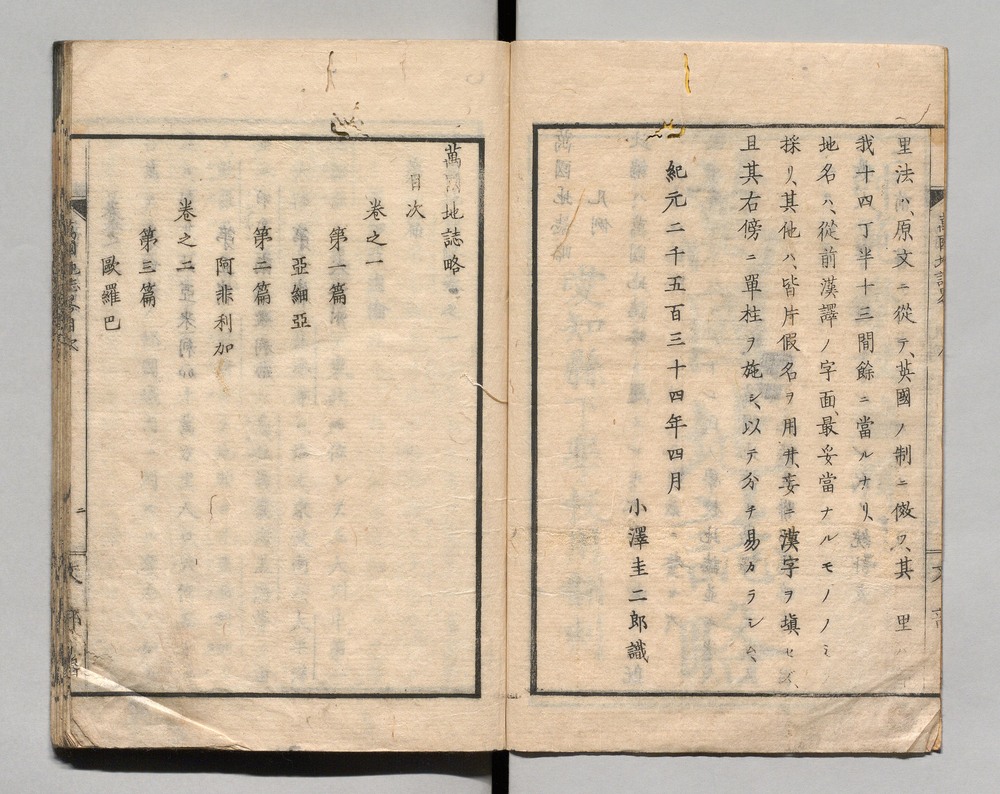 里法ハ、原文ニ從テ、英國ノ制ニ倣フ、其里ハ
我十四丁半十三間餘ニ當ルナリ、
地名ハ、從前漢譯ノ字面、最妥當ナルモノノミ
採リ、其他ハ、皆片假名ヲ用ヰ、妄ニ漢字ヲ塡セズ、
且其右傍ニ單柱ヲ施シ、以テ分チ易カラシム、
紀元二千五百三十四年四月
小澤圭二郎識
萬國地誌略
目次
卷之一
第一篇
亞細亞
第二篇
阿非利加
卷之二
第三篇
歐羅巴
萬國地誌畧目次
二
文部省